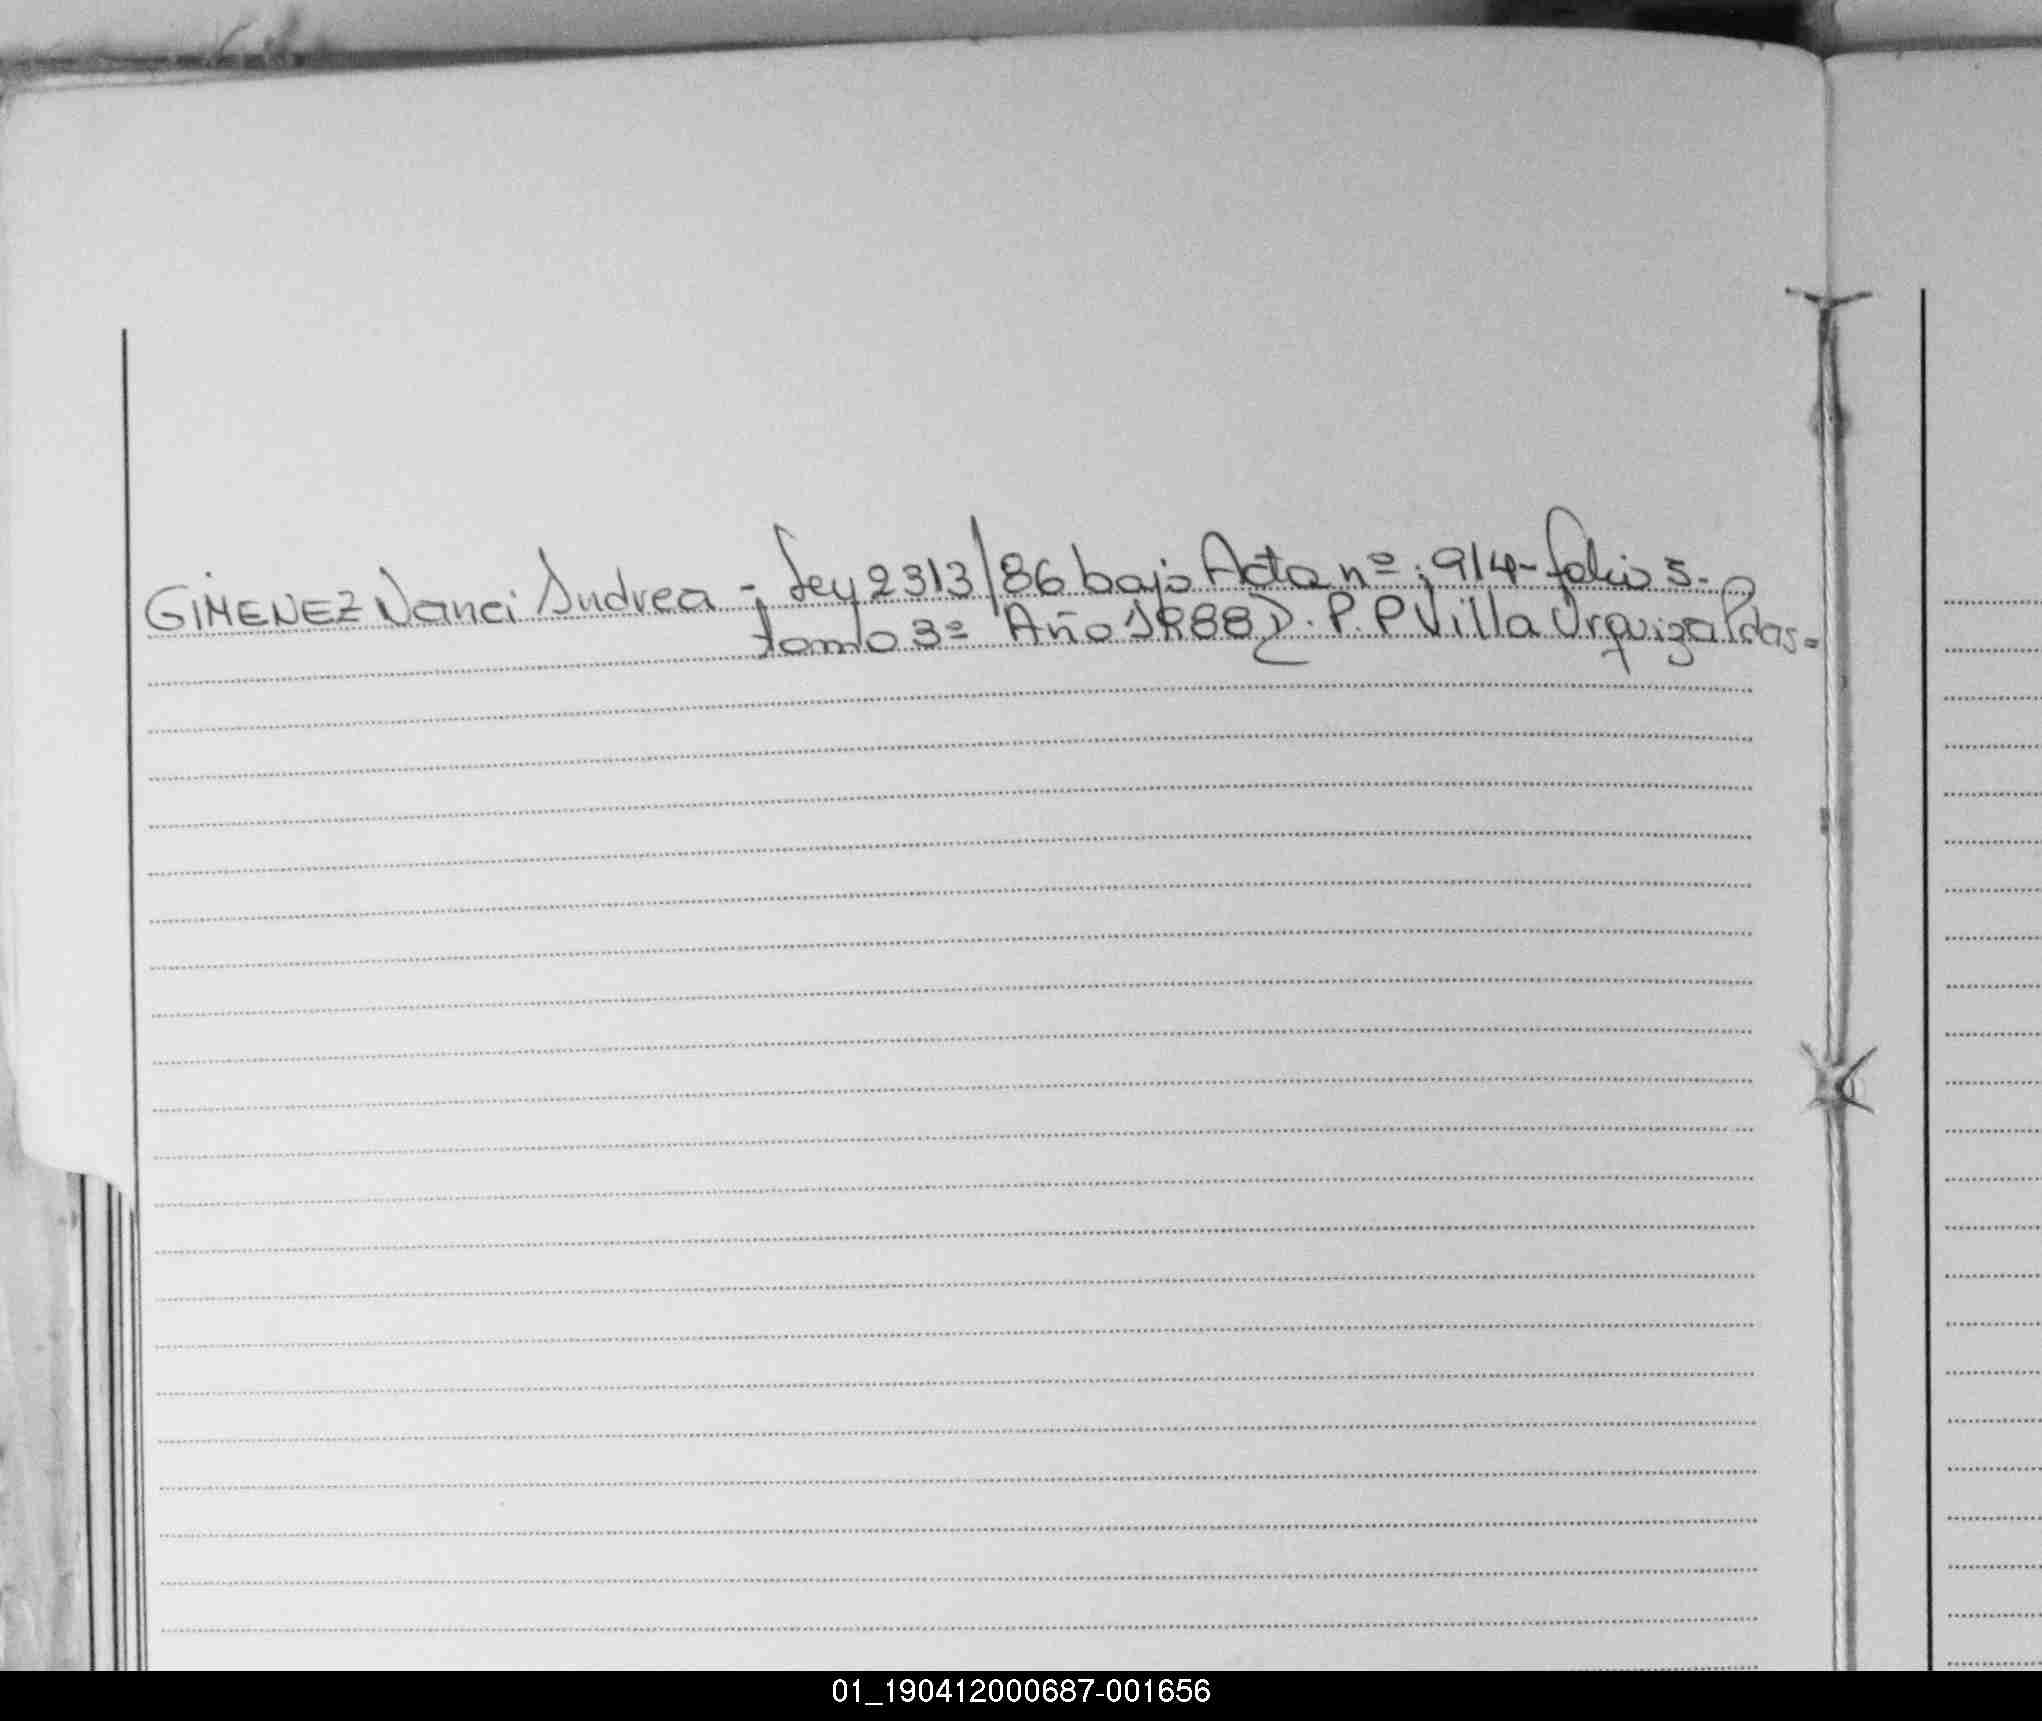 GIMENEZ Nanci Andrea - Ley 2313/86 bajo Acta nº: 914- folio 5.-
tomo 3º Año 1988 D. P. P Villa Urquiza Pdas.=
01_190412000687-001656